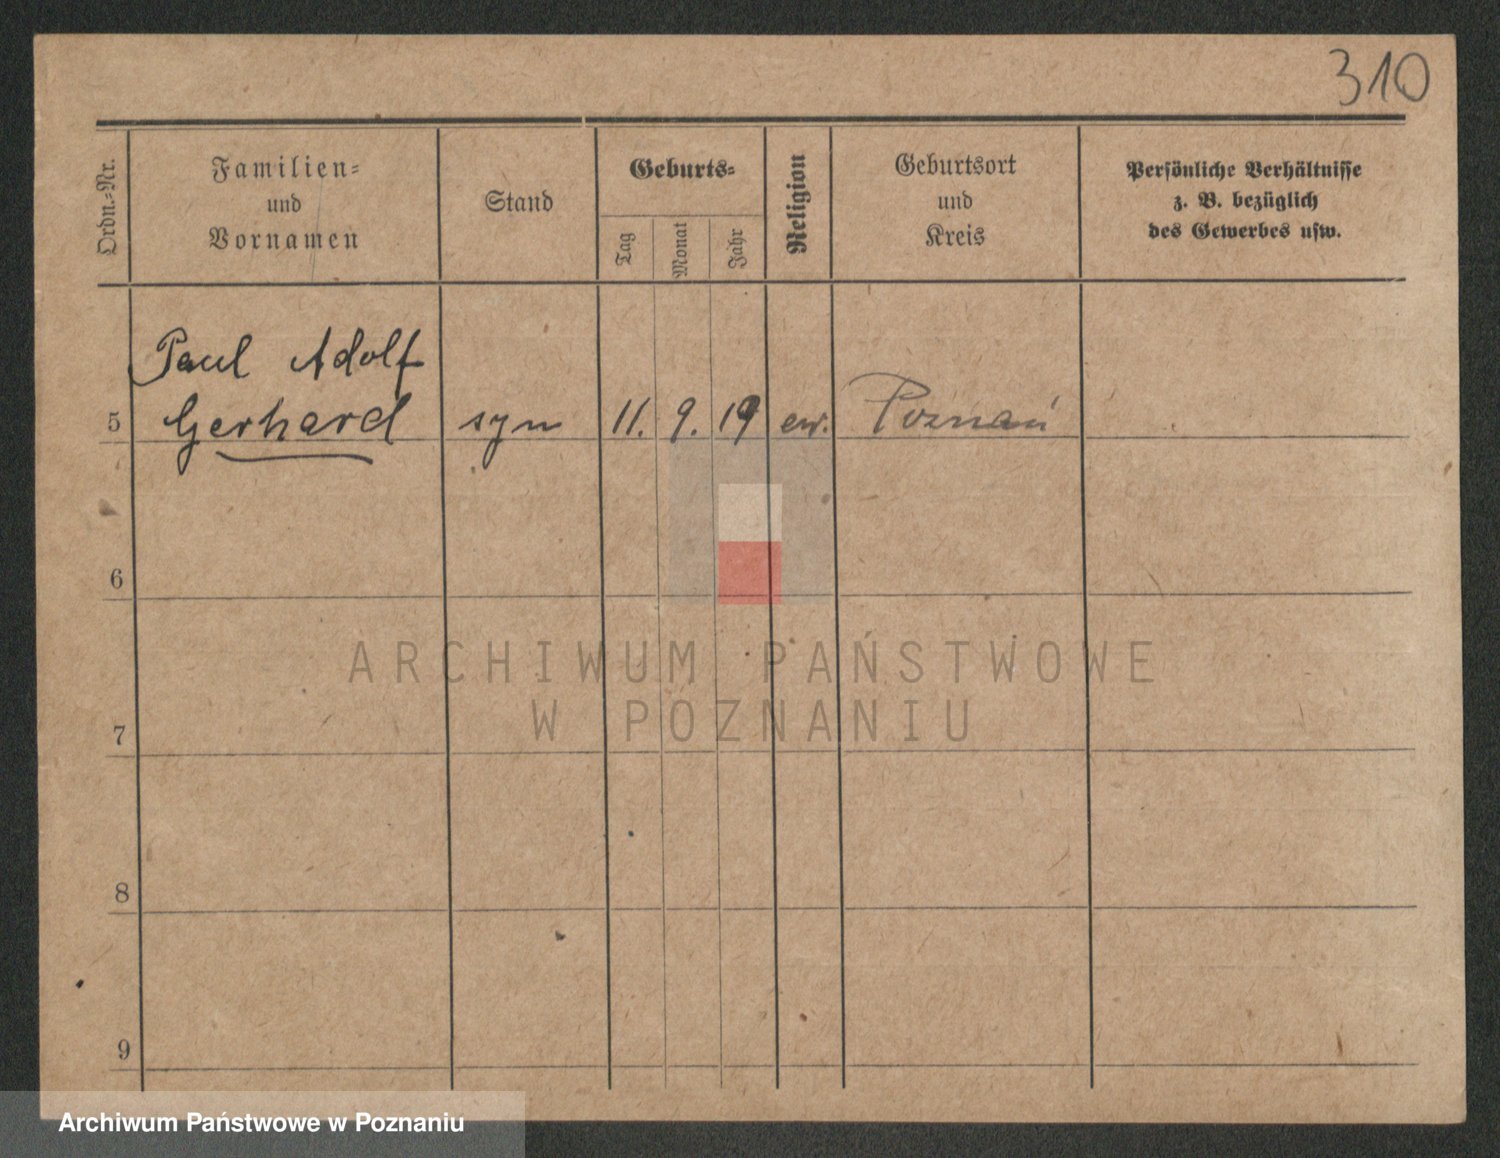 310
Ordn.-Nr.
Familien-
und
Vornamen
Stand
Geburts-
Tag
Monat
Jahr
Religion
Geburtsort
und
Kreis
Persönliche Verhältnisse
z. B. bezüglich
des Gewerbes usw.
Paul Adolf
5 Gerhard syn 11. 9. 19 ew. Poznań
6
ARCHIWUM PAŃSTWOWE
W POZNANIU
7
8
9
Archiwum Państwowe w Poznaniu